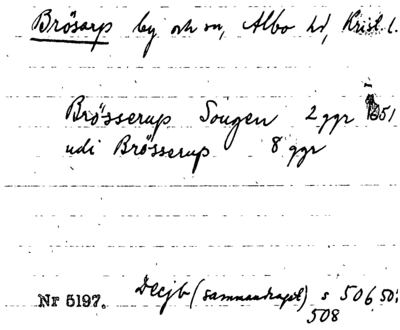 Brösarp by och sn, Albo hd, Krist l.
Brösserup Sougen 2 ggr 1651
udi Brösserup 8 ggr
Nr 5197. Decjb (sammandraget) s 506, 507,
508